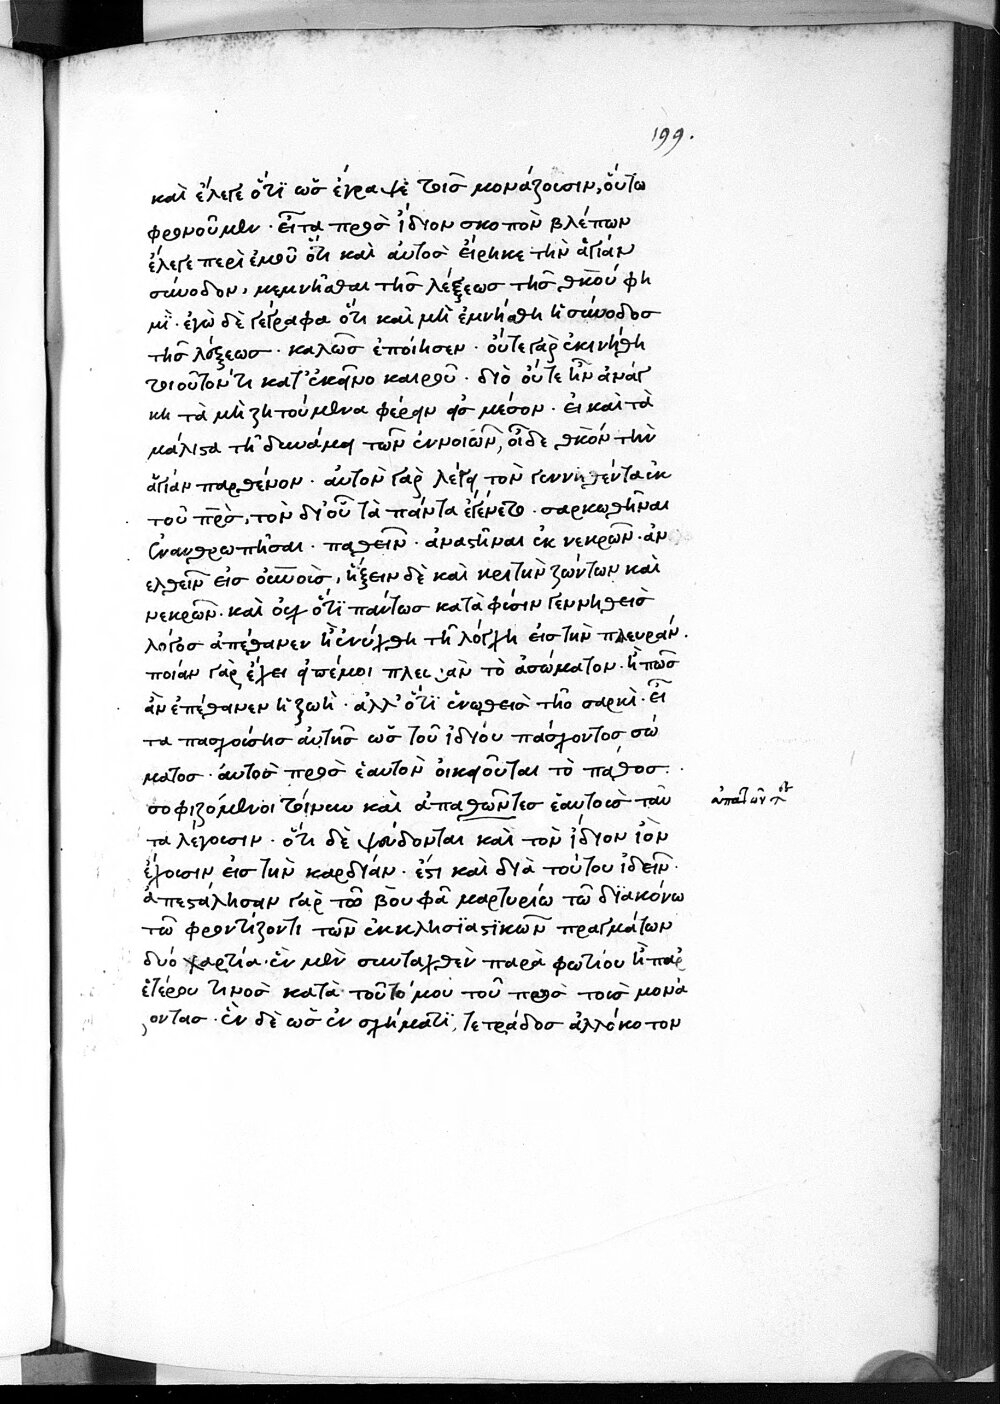 199.
καὶ ἔλεγε ὅτϊ ὡσ ἔγραψὲ τοῖσ μονάζουσιν, οὕτω
φρονοῦμεν · εἶτα πρὸσ ἴδιον σκοπὸν βλέπων
ἔλεγε περὶ ἐμοῦ ὅτι καὶ αὐτὸσ εἴρηκε τὴν ἁγίὰν
σύνοδον, μεμνῆσθαι τῆσ λέξεωσ τῆσ θκοῦ φη
μὶ · ἐγὼ δὲ γέγραφα ὅτι καὶ μὴ ἐμνήσθη ἡ σύνοδοσ
τῆσ λέξεωσ · καλῶσ ἐποίησεν · οὔτε γὰρ ἐκινήθη
τοιοῦτόν τι κατ' ἐκεῖνο καιροῦ · διὸ οὔτε ἦν ἀνάγ
κη τὰ μὴ ζητούμενα φέρειν εἰσ μέσον · εἰ καὶ τὰ
μάλιϛα τῇ δυνάμει τῶν ἐννοιῶν, οἶδε θκὸν τὴν
ἁγίὰν παρθένον · αὐτὸν γὰρ λέγει τὸν γεννηθέντα ἐκ
τοῦ πρσ, τὸν δι' οὗ τὰ πάντα ἐγένετο · σαρκωθῆναι
ἐνανθρωπῆσαι · παθεῖν · ἀναϛῆναι ἐκ νεκρῶν · ἀν
ελθεῖν εἰσ οὐνοὺσ, ἥξειν δὲ καὶ κριτὴν ζώντων καὶ
νεκρῶν · καὶ οὐχ ὅτϊ πάντωσ κατὰ φύσιν γεννηθεὶσ
λόγοσ ἀπέθανεν ἢ ἐνύχθη τῇ λόγχῃ εἰσ τὴν πλευράν ·
ποίαν γὰρ ἔχει εἰπέ μοι πλευρὰν τὸ ἀσώματον · ἢ πῶσ
ἂν ἐπέθανεν ἡ ζωὴ · ἀλλ' ὅτϊ ἑνωθεὶσ τῇ σαρκὶ · εἶ
τα πασχούσησ αὐτῆσ ὡσ τοῦ ἰδίου πάσχοντοσ σώ
ματοσ · αὐτὸσ πρὸσ ἑαυτὸν οἰκειοῦται τὸ πάθοσ ·
σοφιζόμενοι τοίνυν καὶ ἀπαθῶντεσ ἑαυτοὺσ ταῦ
τα λέγουσιν · ὅτι δὲ ψεύδονται καὶ τὸν ἴδιον ἰὸν
ἔχουσιν εἰσ τὴν καρδίάν · ἔϛι καὶ διὰ τούτου ἰδεῖν ·
ἀπεϛάλησαν γὰρ τῶ βουφᾶ μαρτυρίω τῶ δϊακόνω
τῶ φροντίζοντι τῶν ἐκκλησϊαϛϊκῶν πραγμάτων
δύο χαρτία · ἓν μὲν συνταχθὲν παρὰ φωτίου ἢ παρ'
ἑτέρου τινὸσ κατὰ τοῦ τόμου τοῦ πρὸσ τοὺσ μονά
ζοντασ · ἓν δὲ ὡσ ἐν σχήματϊ, τετράδοσ ἀλλόκοτον